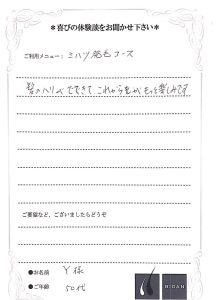 ＊喜びの体験談をお聞かせ下さい＊
ご利用メニュー：ミハツ脱毛コース
髪のハリがでてきて これから先が もっと楽しみです
ご要望など、ございましたらどうぞ
●お名前 Y様
●ご年齢 50代
BIGAN